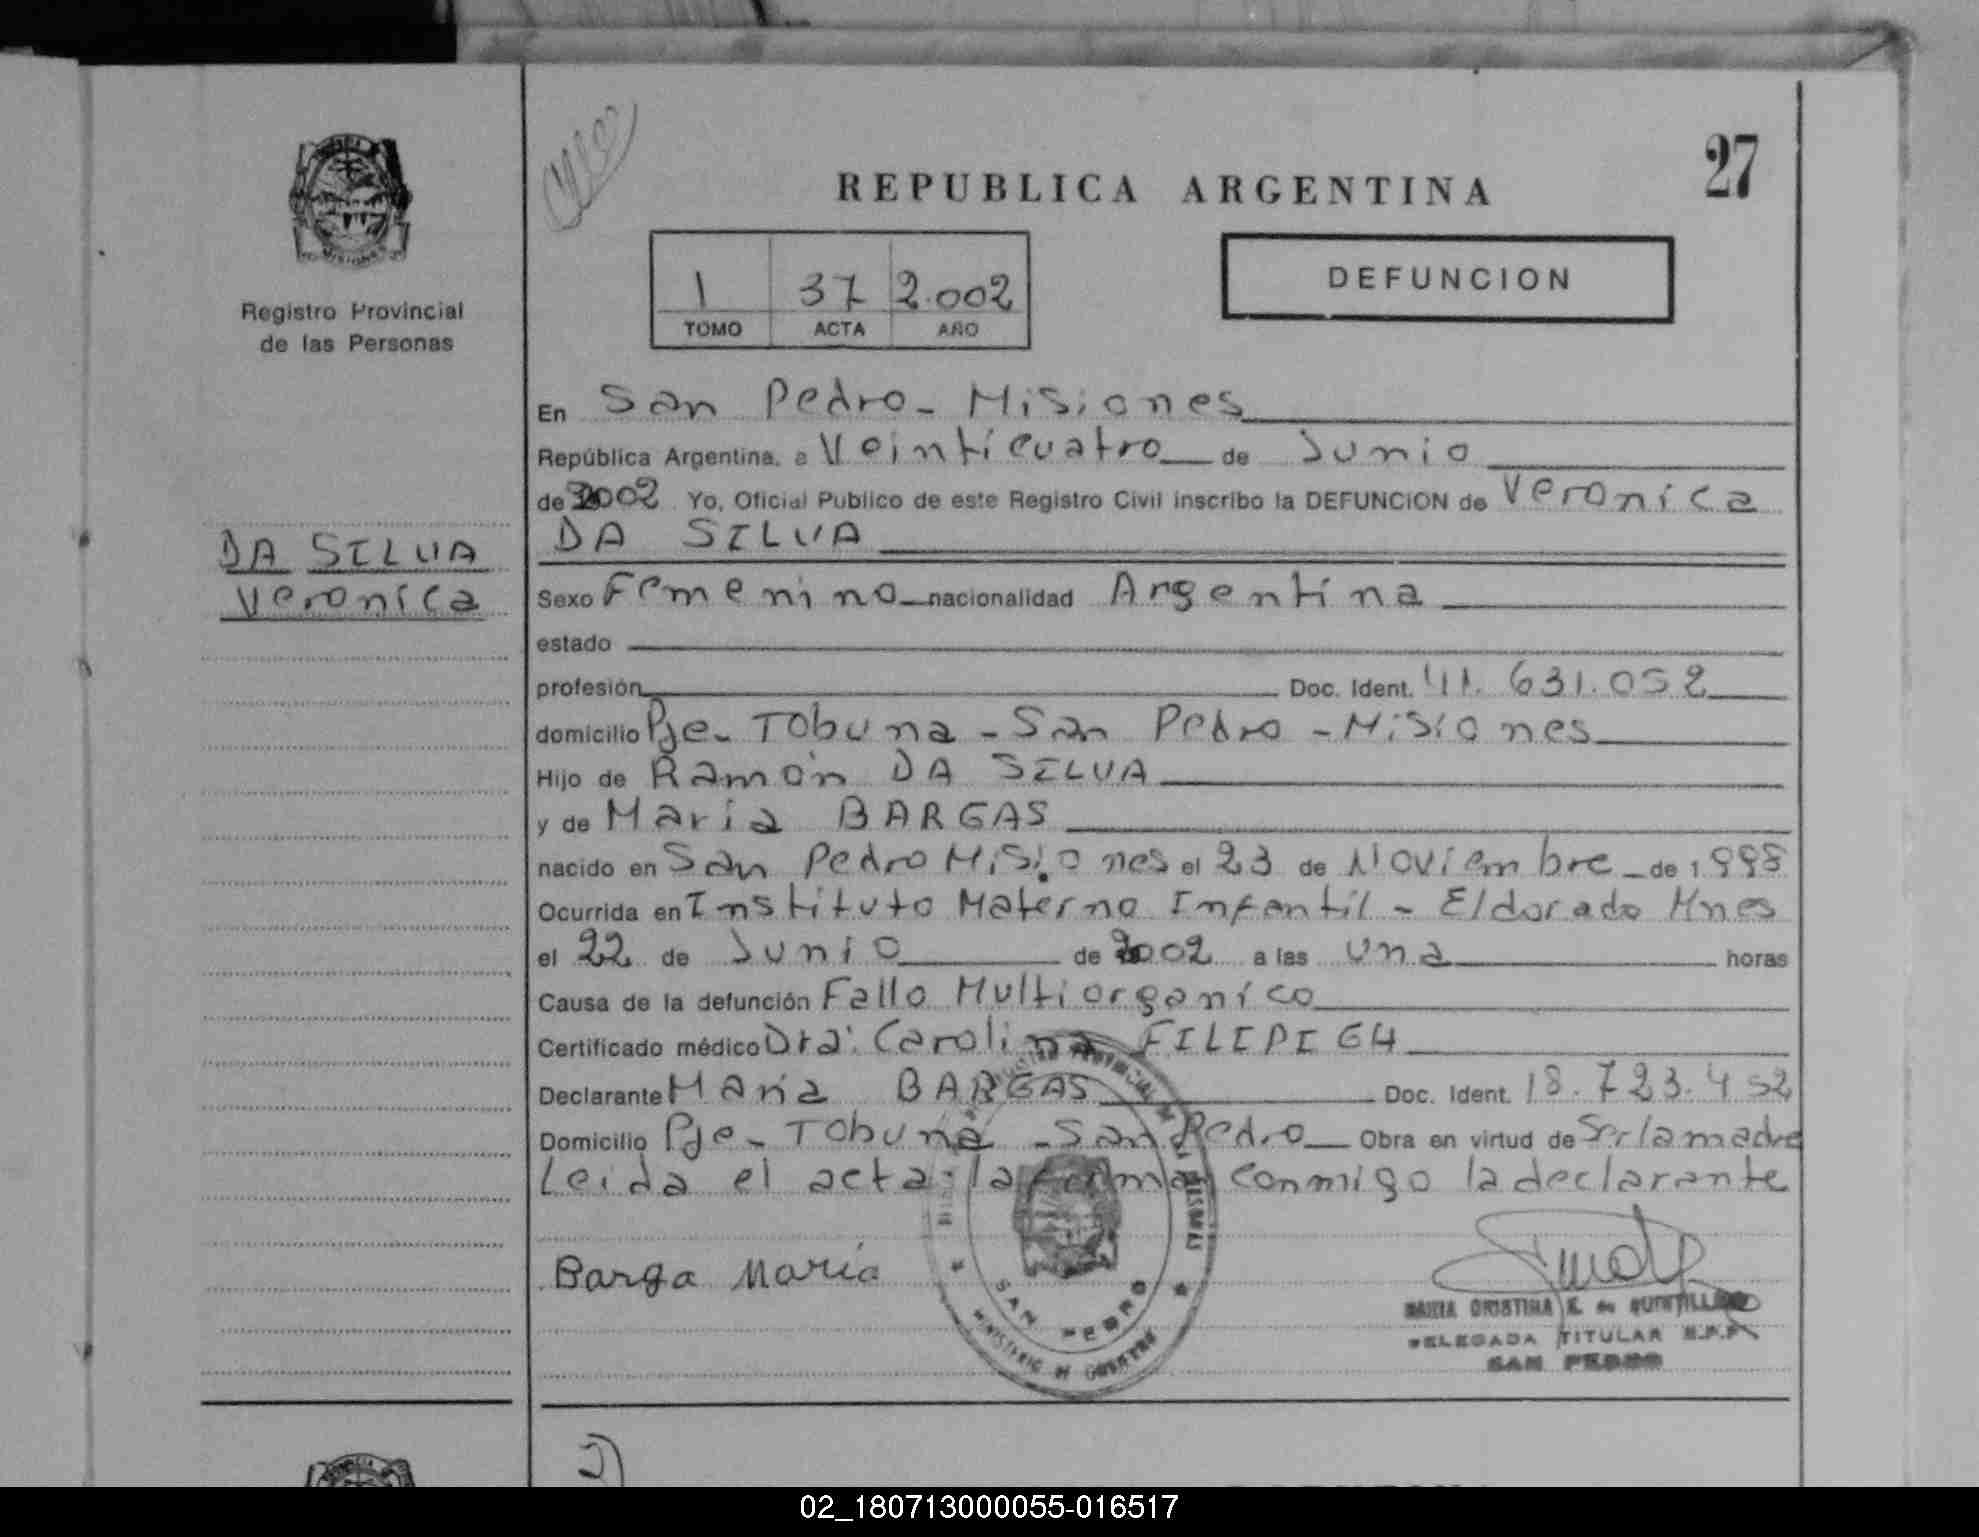 REPUBLICA ARGENTINA
27
1 37 2.002
TOMO ACTA AÑO
DEFUNCION
Registro Provincial
de las Personas
DA SILVA
Veronica
En San Pedro - Misiones
República Argentina, a Veinticuatro de Junio
de 2002 Yo, Oficial Publico de este Registro Civil inscribo la DEFUNCION de Veronica
DA SILVA
Sexo Femenino nacionalidad Argentina
estado
profesión Doc. Ident. 41.631.052
domicilio Pje - Tobuna - San Pedro - Misiones
Hijo de Ramón DA SILVA
y de María BARGAS
nacido en San Pedro Misiones el 23 de Noviembre de 1.998
Ocurrida en Instituto Materno Infantil - Eldorado Mnes
el 22 de Junio de 2002 a las una horas
Causa de la defunción Fallo Multiorganico
Certificado médico Dra: Carolina FILIPIGH
Declarante María BARGAS Doc. Ident. 18.723.452
Domicilio Pje - Tobuna - San Pedro Obra en virtud de Ser la madre
Leida el acta la firma conmigo la declarante
Barga María
SAN PEDRO
MINISTERIO DE GOBIERNO
MARIA CRISTINA K. de
DELEGADA TITULAR R.P.P.
SAN PEDRO
2)
02_180713000055-016517